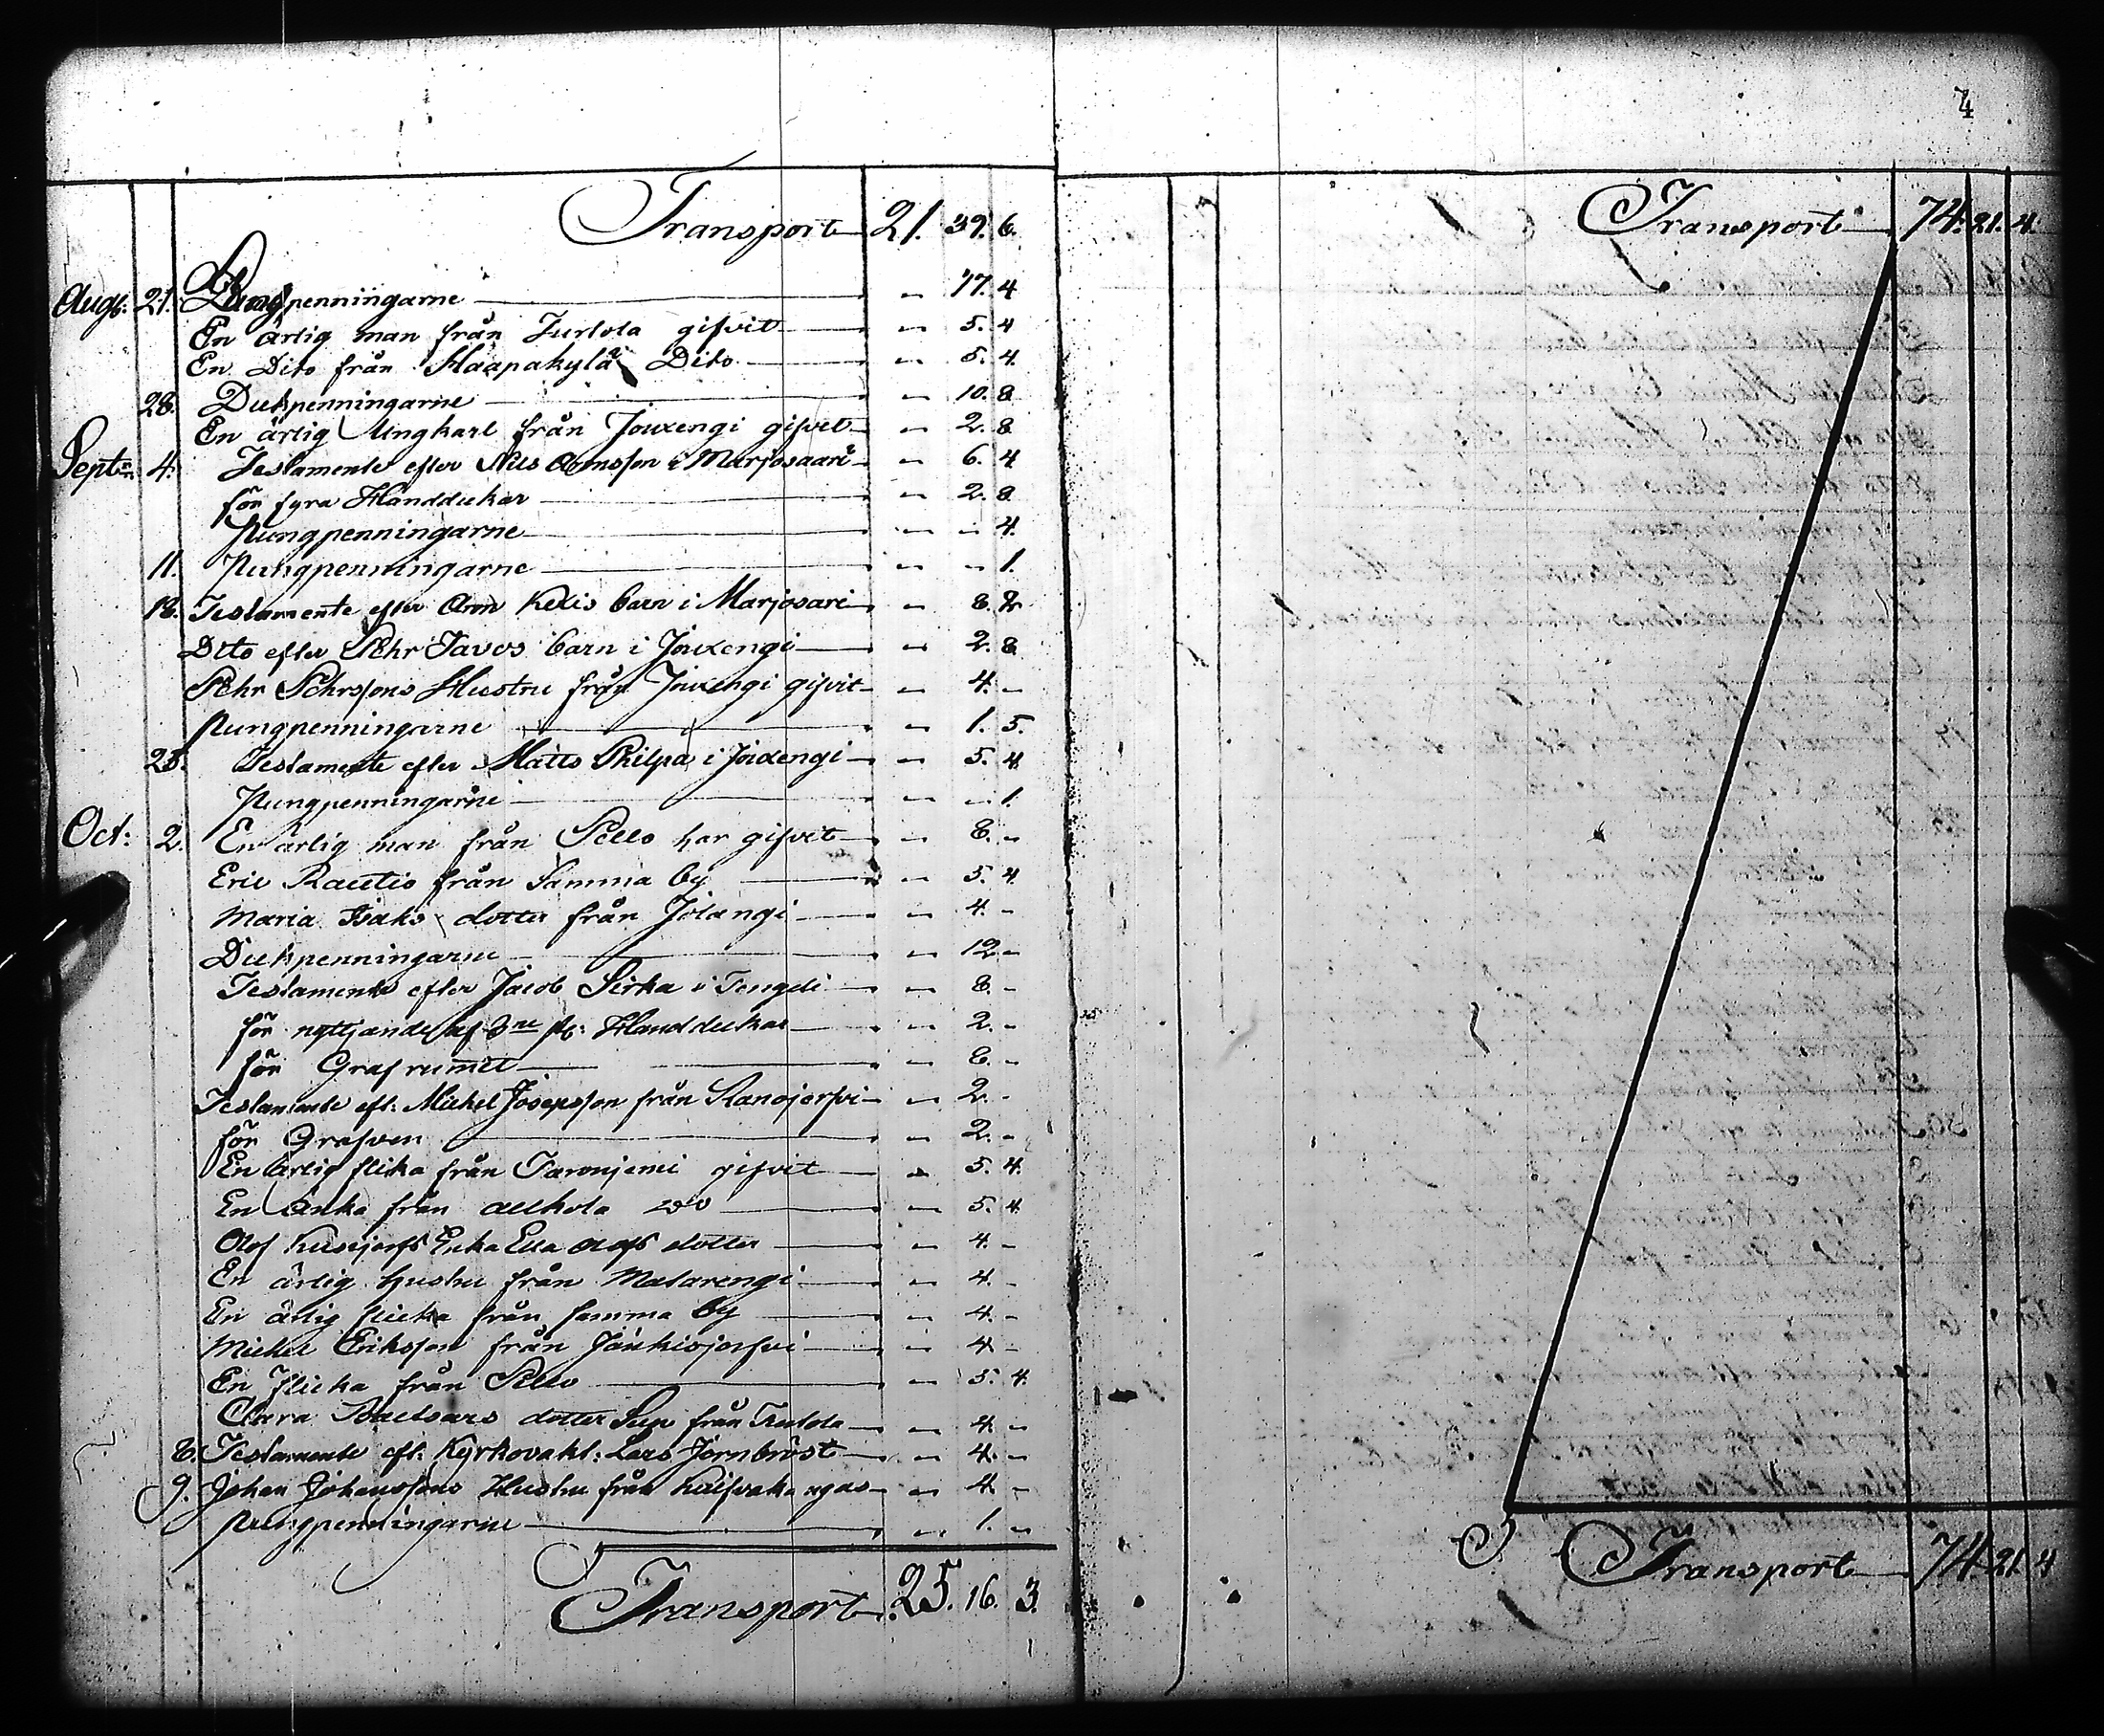 Transport 21. 39. 6.
Augs: 21. Pungpenningarne " 17. 4
En ärlig man från Turtola gifvit " 5. 4
En Dito från Haapakylä Dito " 5. 4.
28. Dukpenningarne " 10. 8
En ärlig Ungkarl från Jouxengi gifvet " 2. 8
Septr 4. Testamente efter Nils i Marjosaari " 6. 4
för fyra Handdukar " 2. 8
Pungpenningarne " " 4.
11. Pungpenningarne " " 1.
18. Testamente efter Aron barn i Marjosari " 8.
Dito efter Pehr barn i Jouxengi " 2. 8
Pehr Pehrssons Hustru från Jouxengi gifvit " 4. "
Pungpenningarne " 1. 5.
25. Testamente efter Matts Philpa i Jouxengi " 5. 4
Pungpenningarne " " 1.
Oct: 2. En ärlig man från Pello har gifvit " 8. "
Eric Rautio från Samma by " 5. 4
Maria Isaks dotter från Jolangi " 4. "
Dukpenningarne " 12 "
Testamente efter Jacob Sirka i Tengeli " 8. "
för nyttjande af 3ne st: Handdukar " 2. "
för Grafrummet " 8. "
Testamente eft: Mickel Josepsson från " 2. "
för Grafven " 2. "
En ärlig flika från Taronjemi gifvit " 5. 4.
En Enka från Alkola " 5. 4
Olof Enka Ella Olofs dotter " 4. "
En ärlig hustru från Matarengi " 4. "
En ärlig flicka från samma by " 4. "
Mickel Eriksson från Jänkisjerfvi " 4 "
En flicka från Pello " 5. 4.
Clara dotter från " 4. "
8. Testamente eft: Kyrkovakt: Lars Jernbröst " 4. "
9. Johan Johanssons Hustru från " 4. "
Pungpenningarne " 1. "
Transport 25. 16. 3.
4
Transport 74. 21. 4.
Transport 74. 21. 4